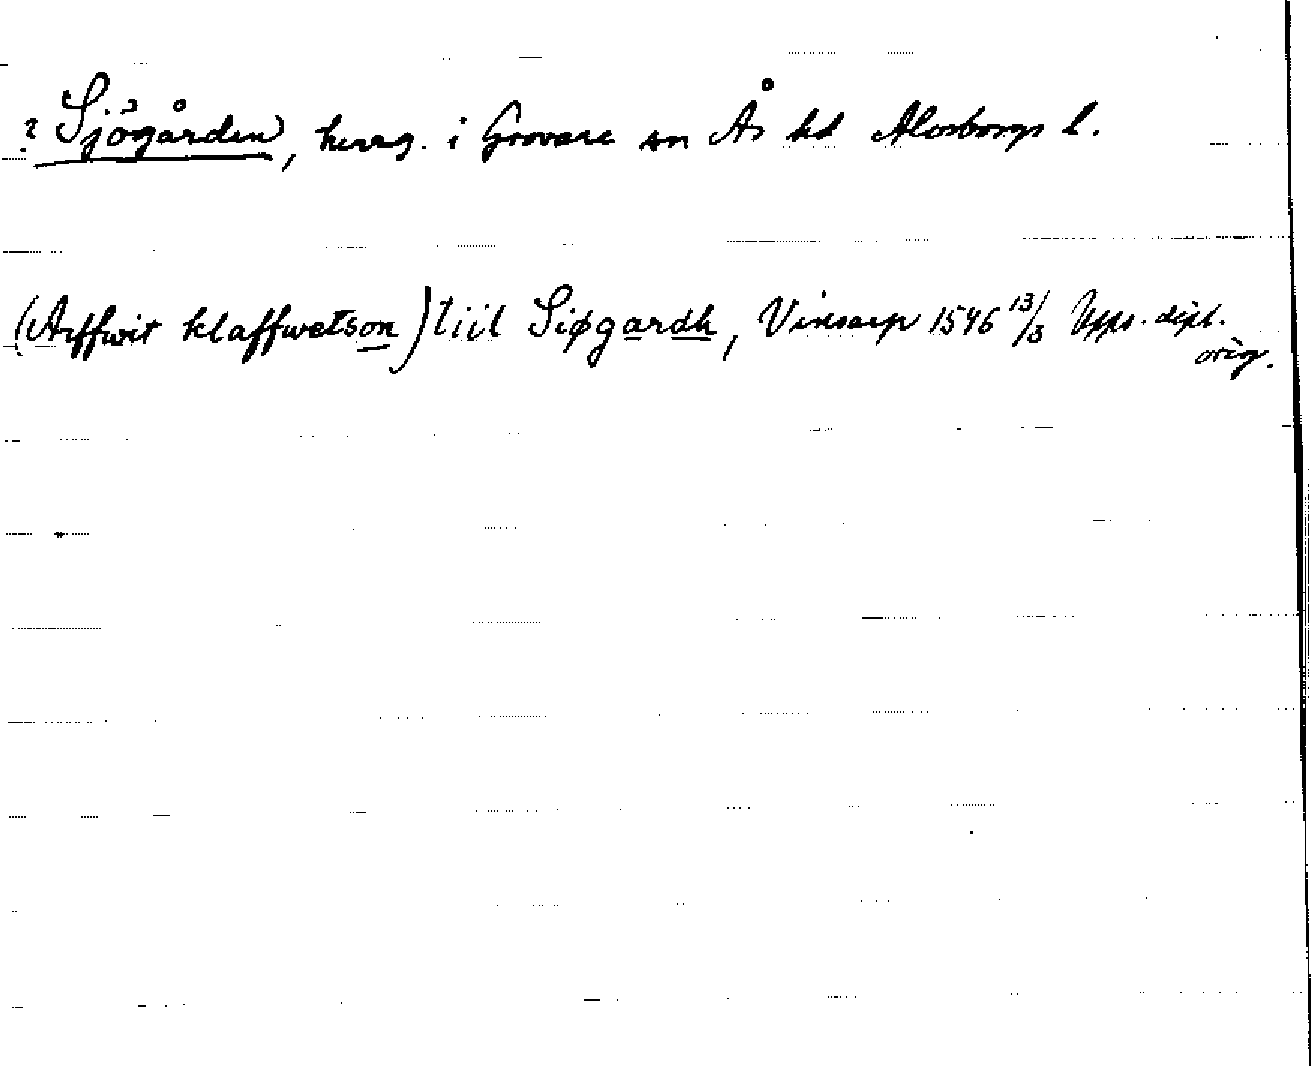 ? Sjögården, herrg. i Grovare sn Ås hd Älvsborgs l.
(Arffwit klaffwetson) tiil Siøgardh, Vinsarp 1546 13/3 Upps. dipl.
orig.